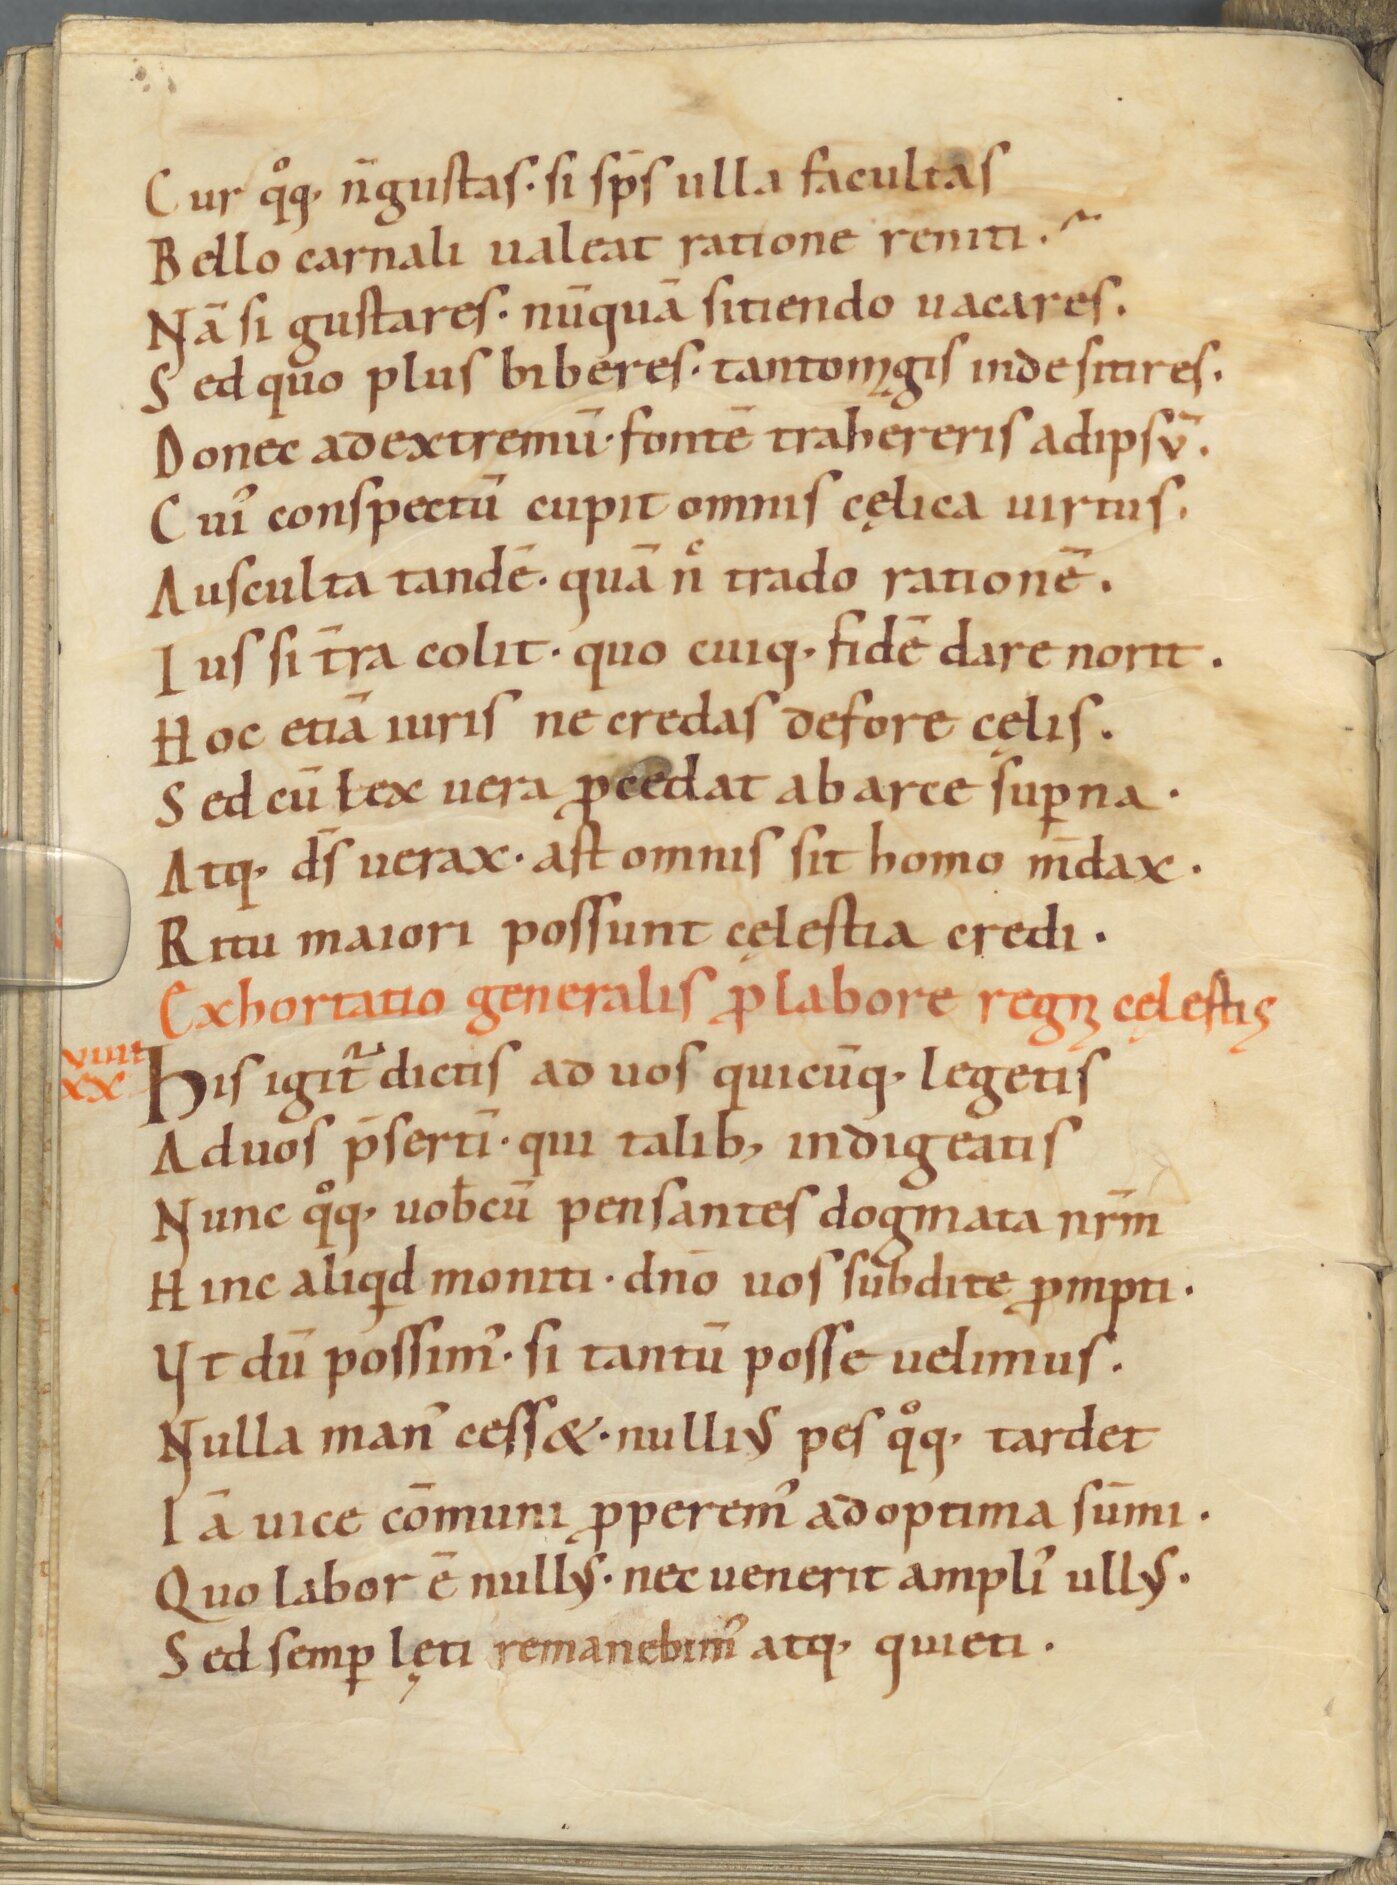 Cur qͦq· n̄ gustas· si sp̄s ulla facultas
Bello carnali ualeat ratione reniti·~
Nā si gustares· nūquā sitiendo uacares.
Sed quo plus biberes· tanto mgis inde sitires.
Donec ad extremū· fontē trahereris ad ipsū.
Cui᾿ conspectū cupit omnis cęlica uirtus.
Ausculta tandē· quā nͨ trado rationē.
Ius si t̄ra colit· quo cuiq· fidē dare norit.
Hoc etiā iuris ne credas defore cęlis.
Sed cū lex uera ꝓcedat ab arce suꝑna·
Atq· d̄s uerax· ast omnis sit homo m̄dax·
Ritu maiori possunt cęlestia credi·
Exhortatio generalis ꝓ labore regni cęlestis
XX
VIIII
His igit᷑ dictis ad uos quicūq· legetis
Ad uos p̄sertī· qui talib; indigeatis
Nunc qͦq· uob̄cū pensantes dogmata nr̄m
Hinc aliqid moniti· dn̄o uos subdite ꝓmpti·
Vt dū possim᾿· si tantū posse uelimus.
Nulla man᾿ cess&· nullius pes qͦq· tardet
Iā uice cōmuni ꝓperem᾿ ad optima sūmi·
Quo labor ē nullus· nec uenerit ampli᾿ ullus·
Sed semꝑ lęti remanebim᾿ atq· quieti·